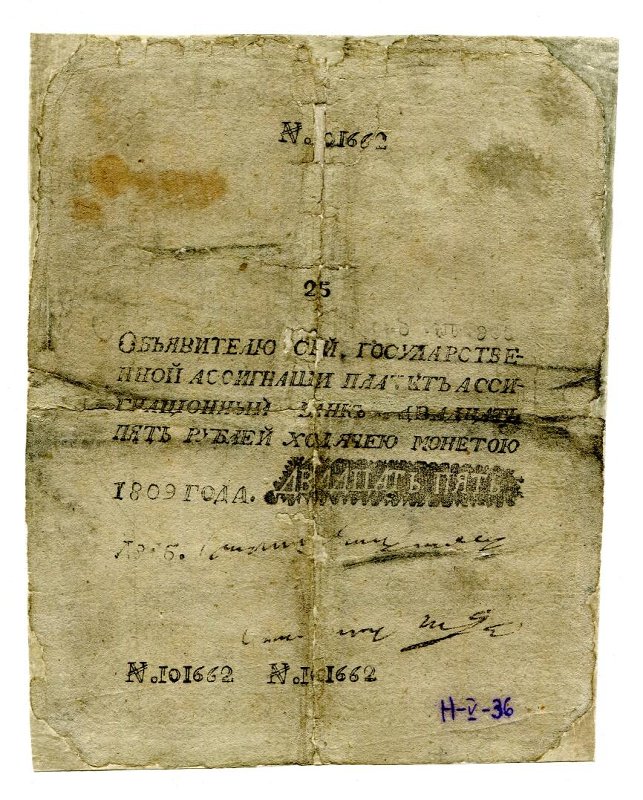 №.101662
25
ОБЪЯВИТЕЛЮ СЕЙ. ГОСУДАРСТВЕ-
ННОЙ АССИГНАЦІИ ПЛАТИТЪ АССИ-
ГНАЦІОННЫЙ БАНКЪ ДВАДЦАТЬ
ПЯТЬ РУБЛЕЙ ХОДЯЧЕЮ МОНЕТОЮ
1809 ГОДА. ДВАДЦАТЬ ПЯТЬ
№.101662 №.101662
Н-V-36